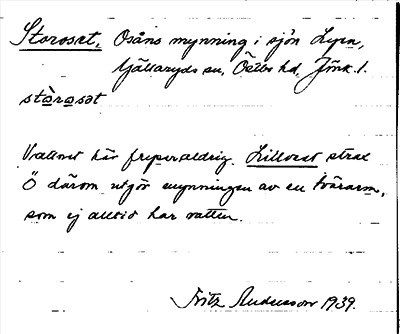 Storosat, Osåns mynning i sjön Lyen,
Gällaryds sn, Östbo hd, Jönk. l.
stòrosàt
Vattnet här fryser aldrig. Lillosat strax
Ö därom utgör mynningen av en tvärarm,
som ej alltid har vatten.
Fritz Andersson 1939.